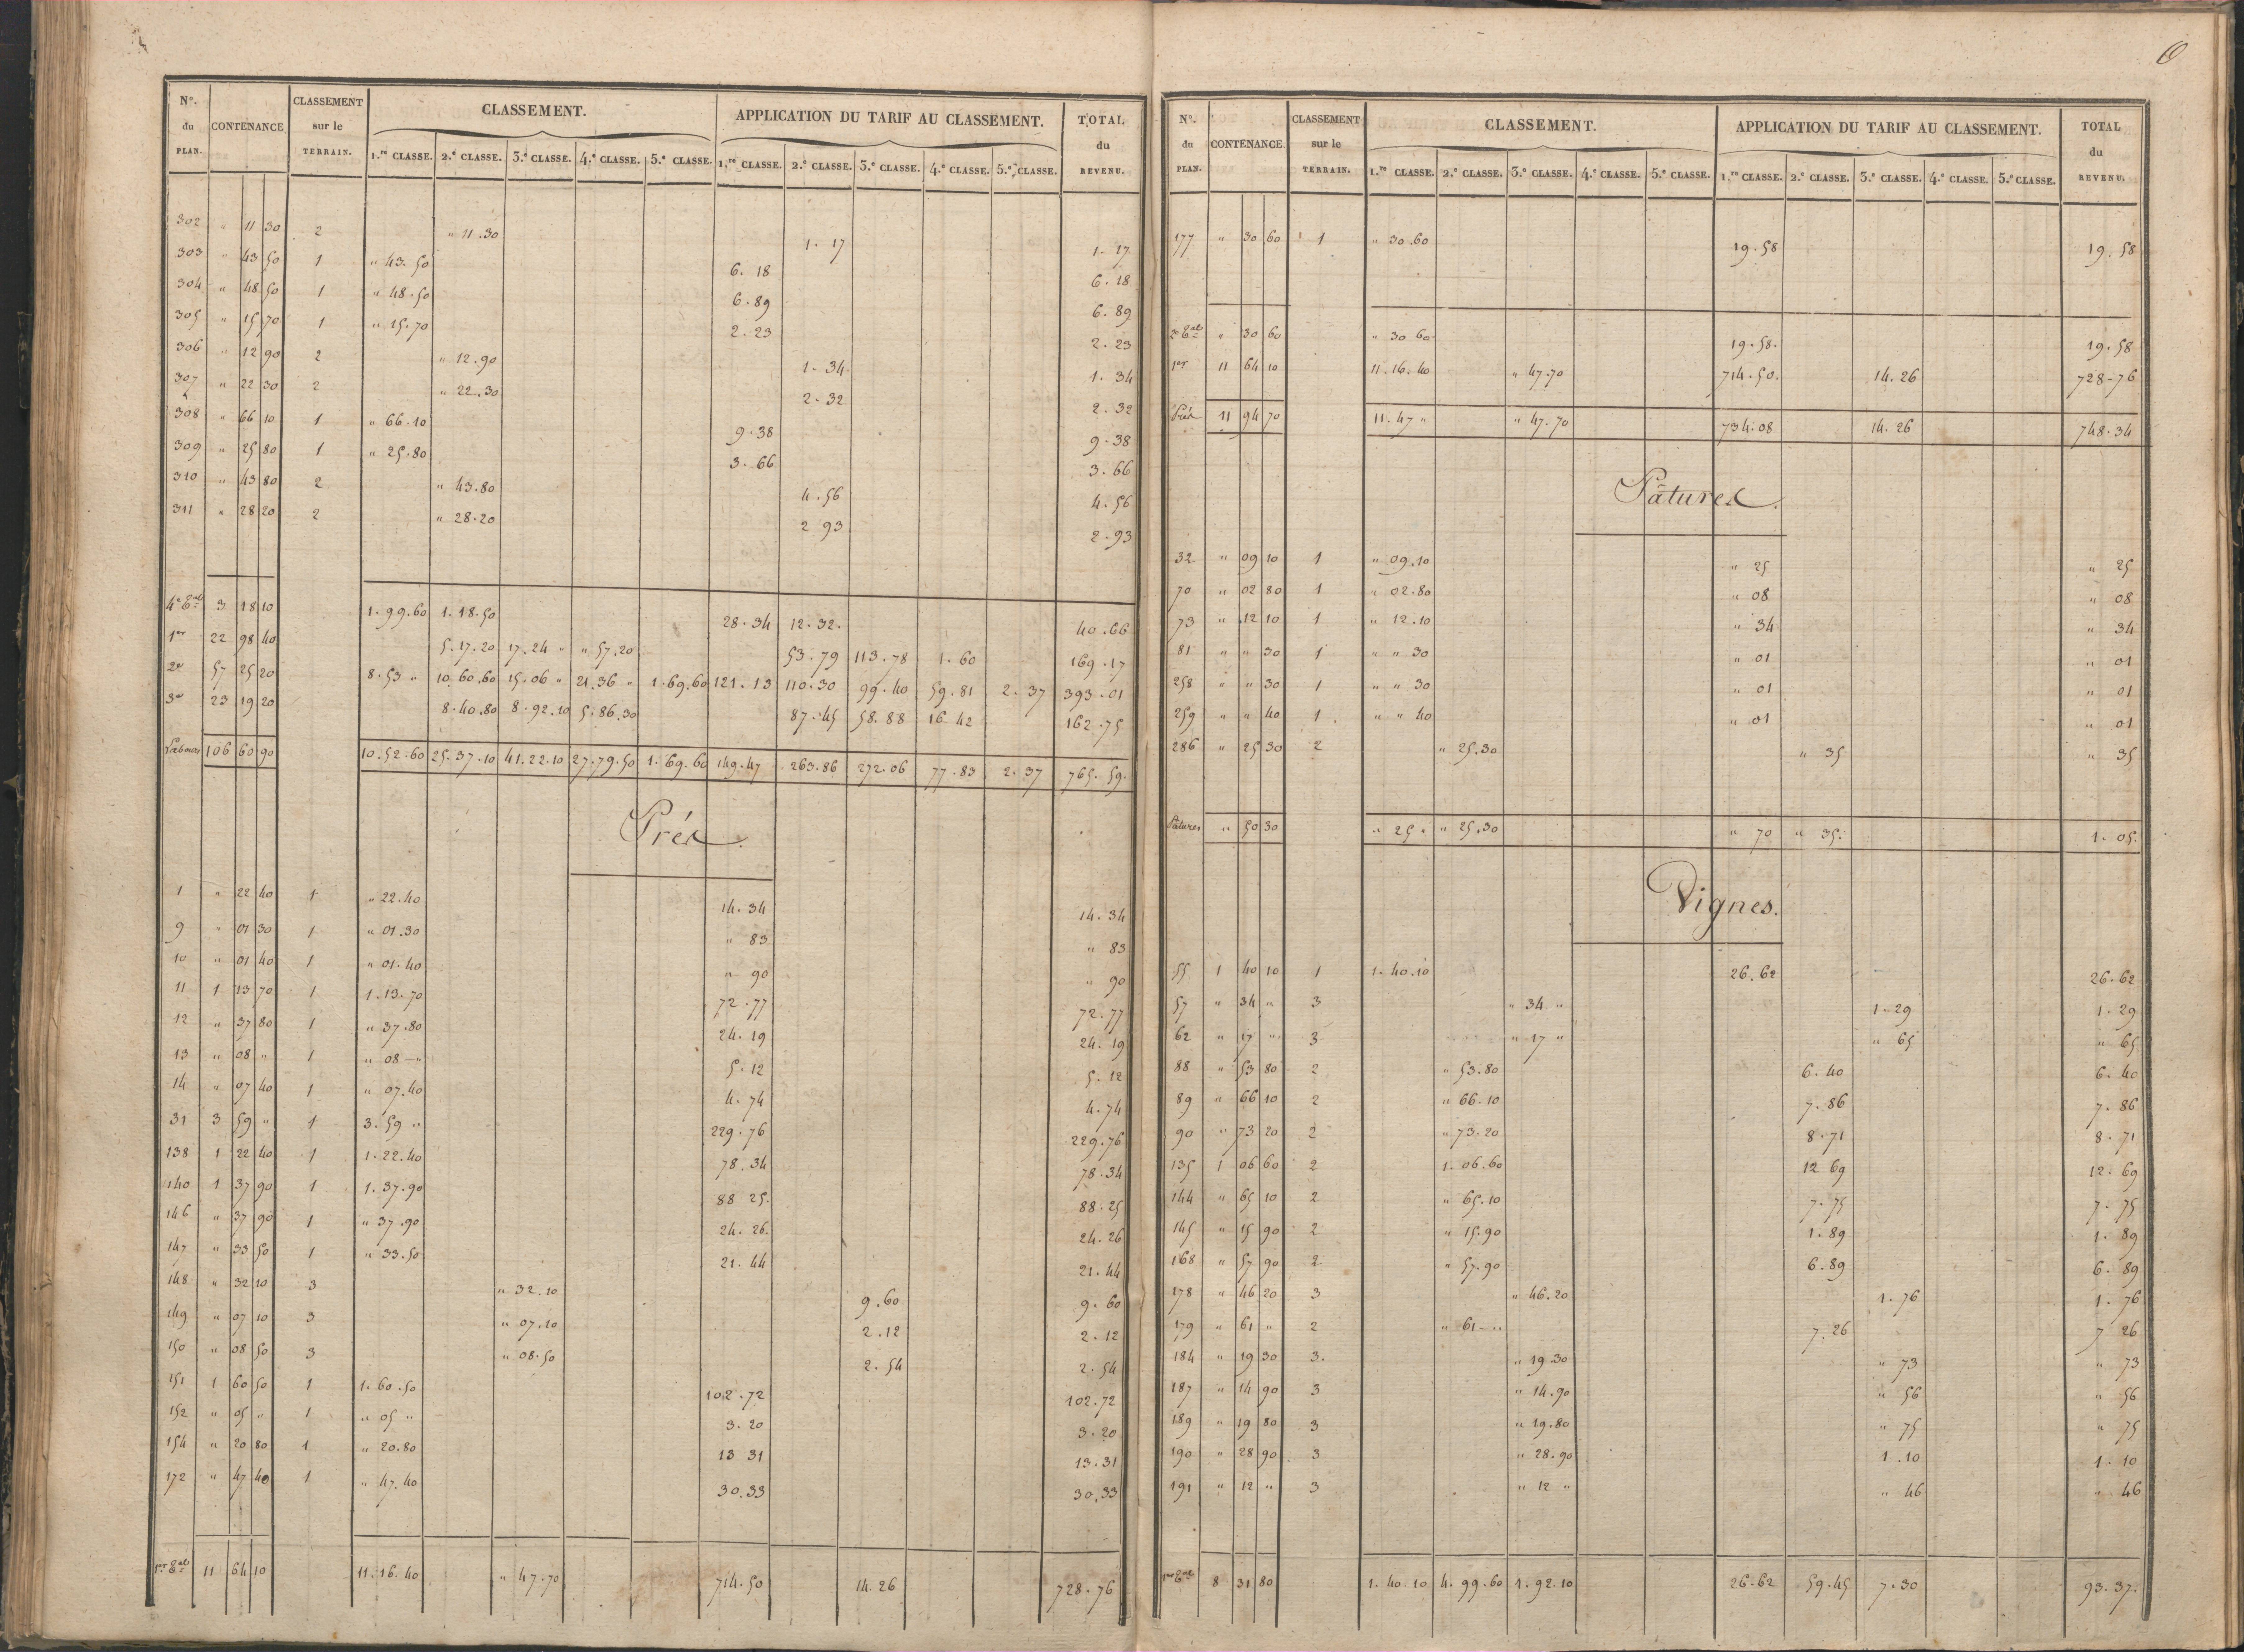 N.º du PLAN. CONTENANCE CLASSEMENT sur le TERRAIN. CLASSEMENT. APPLICATION DU TARIF AU CLASSEMENT. TOTAL du REVENU.
1.re CLASSE. 2.e CLASSE. 3.e CLASSE. 4.e CLASSE. 5.e CLASSE. 1.re CLASSE. 2.e CLASSE. 3.e CLASSE. 4.e CLASSE. 5.e CLASSE.
302 " 11 30 2 " 11.30 1. 17 1. 17
303 " 43 50 1 " 43. 50 6. 18 6. 18
304 " 48 50 1 " 48.50 6.89 6. 89
305 " 15 70 1 " 15.70 2. 23 2. 23
306 " 12 90 2 " 12.90 1. 34 1. 34
307 " 22 30 2 " 22.30 2. 32 2. 32
308 " 66 10 1 " 66.10 9.38 9.38
309 " 25 80 1 " 25.80 3. 66 3. 66
310 " 43 80 2 " 43.80 4.56 4.56
311 " 28 20 2 " 28.20 2 93 2.93
4e Eal 3 18 10 1.99.60 1.18.50 28.34 12.32. 40.66
1er 22 98 40 5.17.20 17.24 " " 57.20 53.79 113.78 1.60 169.17
2e 57 25 20 8.53 " 10.60.60 15.06 " 21.36 " 1.69.60 121.13 110.30 99.40 59.81 2.37 393.01
3e 23 19 20 8.40.80 8.92.10 5.86.30 87.45 58.88 16 42 162.75
Labours 106 60 90 10.52.60 25.37.10 41.22.10 27.79.50 1.69.60 149.47 263.86 272.06 77.83 2.37 765.59.
Prés.
1 " 22 40 1 " 22.40 14.34 14.34
9 " 01 30 1 " 01.30 " 83 " 83
10 " 01 40 1 " 01.40 " 90 " 90
11 1 13 70 1 1.13.70 72.77 72.77
12 " 37 80 1 " 37.80 24.19 24.19
13 " 08 " 1 " 08 – " 5.12 5.12
14 " 07 40 1 " 07.40 4.74 4.74
31 3 59 " 1 3.59 " 229.76 229.76
138 1 22 40 1 1.22.40 78.34 78.34
140 1 37 90 1 1.37.90 88 25. 88.25
146 " 37 90 1 " 37.90 24.26. 24.26
147 " 33 50 1 " 33.50 21.44 21.44
148 " 32 10 3 " 32.10 9.60 9.60
149 " 07 10 3 " 07.10 2.12 2.12
150 " 08 50 3 " 08.50 2.54 2.54
151 1 60 50 1 1.60.50 102.72 102.72
152 " 05 " 1 " 05 " 3.20 3.20
154 " 20 80 1 " 20.80 13 31 13.31
172 " 47 40 1 " 47.40 30.33 30.33
1er Eal 11 64 10 11.16.40 " 47.70 714.50 14.26 728.76
N.º du PLAN. CONTENANCE. CLASSEMENT sur le TERRAIN. CLASSEMENT. APPLICATION DU TARIF AU CLASSEMENT. TOTAL du REVENU.
1.re CLASSE. 2.e CLASSE. 3.e CLASSE. 4.e CLASSE. 5.e CLASSE. 1.re CLASSE. 2.e CLASSE. 3.e CLASSE. 4.e CLASSE. 5.e CLASSE.
177 " 30 60 1 " 30.60 19.58 19.58
2e Eal " 30 60 " 30 60 19.58. 19.58
1er 11 64 10 11.16.40 " 47.70 714.50. 14.26 728-76
Prés 11 94 70 11.47 " " 47.70 734.08 14.26 748.34
Pâtures.
32 " 09 10 1 " 09.10 " 25 " 25
70 " 02 80 1 " 02.80 " 08 " 08
73 " 12 10 1 " 12.10 " 34 " 34
81 " " 30 1 " " 30 " 01 " 01
258 " " 30 1 " " 30 " 01 " 01
259 " " 40 1 . " " 40 " 01 " 01
286 " 25 30 2 " 25.30 " 35 " 35
Pâtures " 50 30 " 25 " " 25.30 " 70 " 35. 1.05.
Vignes.
55 1 40 10 1 1.40.10 26.62 26.62
57 " 34 " 3 " 34 " 1.29 1.29
62 " 17 " 3 " 17 " " 65 " 65
88 " 53 80 2 " 53.80 6.40 6.40
89 " 66 10 2 " 66.10 7.86 7.86
90 " 73 20 2 " 73.20 8.71 8.71
135 1 06 60 2 1.06.60 12 69 12.69
144 " 65 10 2 " 65.10 7.75 7.75
145 " 15 90 2 " 15.90 1.89 1.89
168 " 57 90 2 " 57.90 6.89 6.89
178 " 46 20 3 " 46.20 1.76 1.76
179 " 61 " 2 " 61 – " 7.26 7 26
184 " 19 30 3. " 19.30 " 73 " 73
187 " 14 90 3 " 14.90 " 56 " 56
189 " 19 80 3 " 19.80 " 75 " 75
190 " 28 90 3 " 28.90 1.10 1.10
191 " 12 " 3 " 12 " " 46 " 46
1er Eal 8 31 80 1.40.10 4.99.60 1.92.10 26.62 59.45 7.30 93.37.